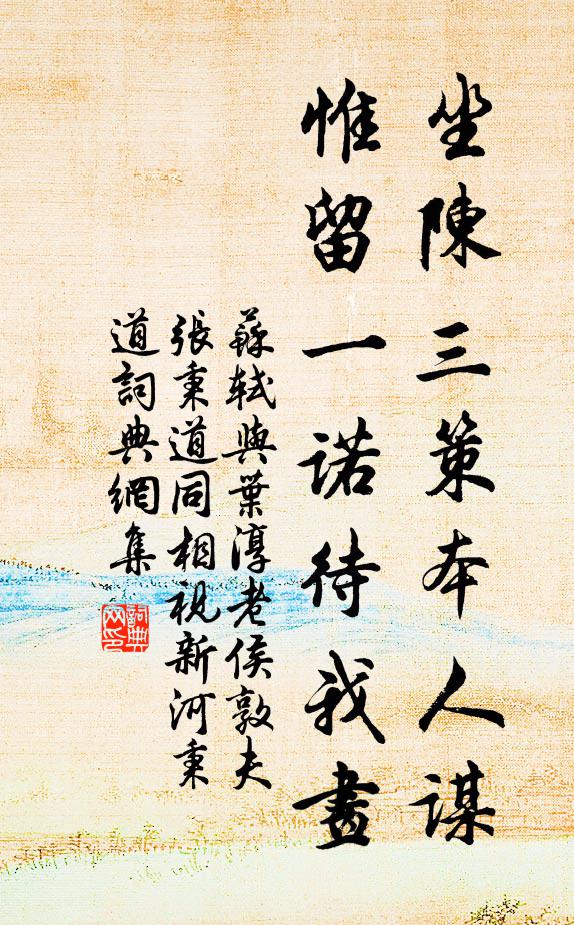 坐陳三策本人謀
惟留一諾待我畫
蘇軾與葉淳老侯敦夫
張秉道同相視新河秉
道詞典網集
詞典
网印